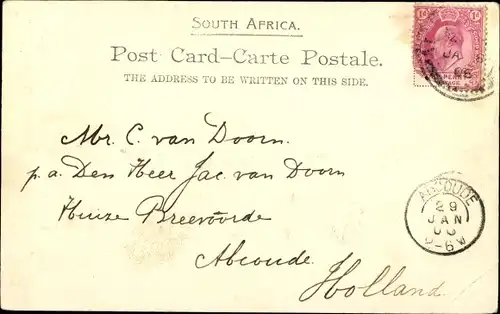 SOUTH AFRICA.
Post Card–Carte Postale.
THE ADDRESS TO BE WRITTEN ON THIS SIDE.
1d 1d
JA
06
PENNY
Mr. C. van Doorn.
p.a. Den Heer Jac. van Doorn
Huize Breevoorde
Abcoude.
Holland
ABCOUDE
29
JAN
06